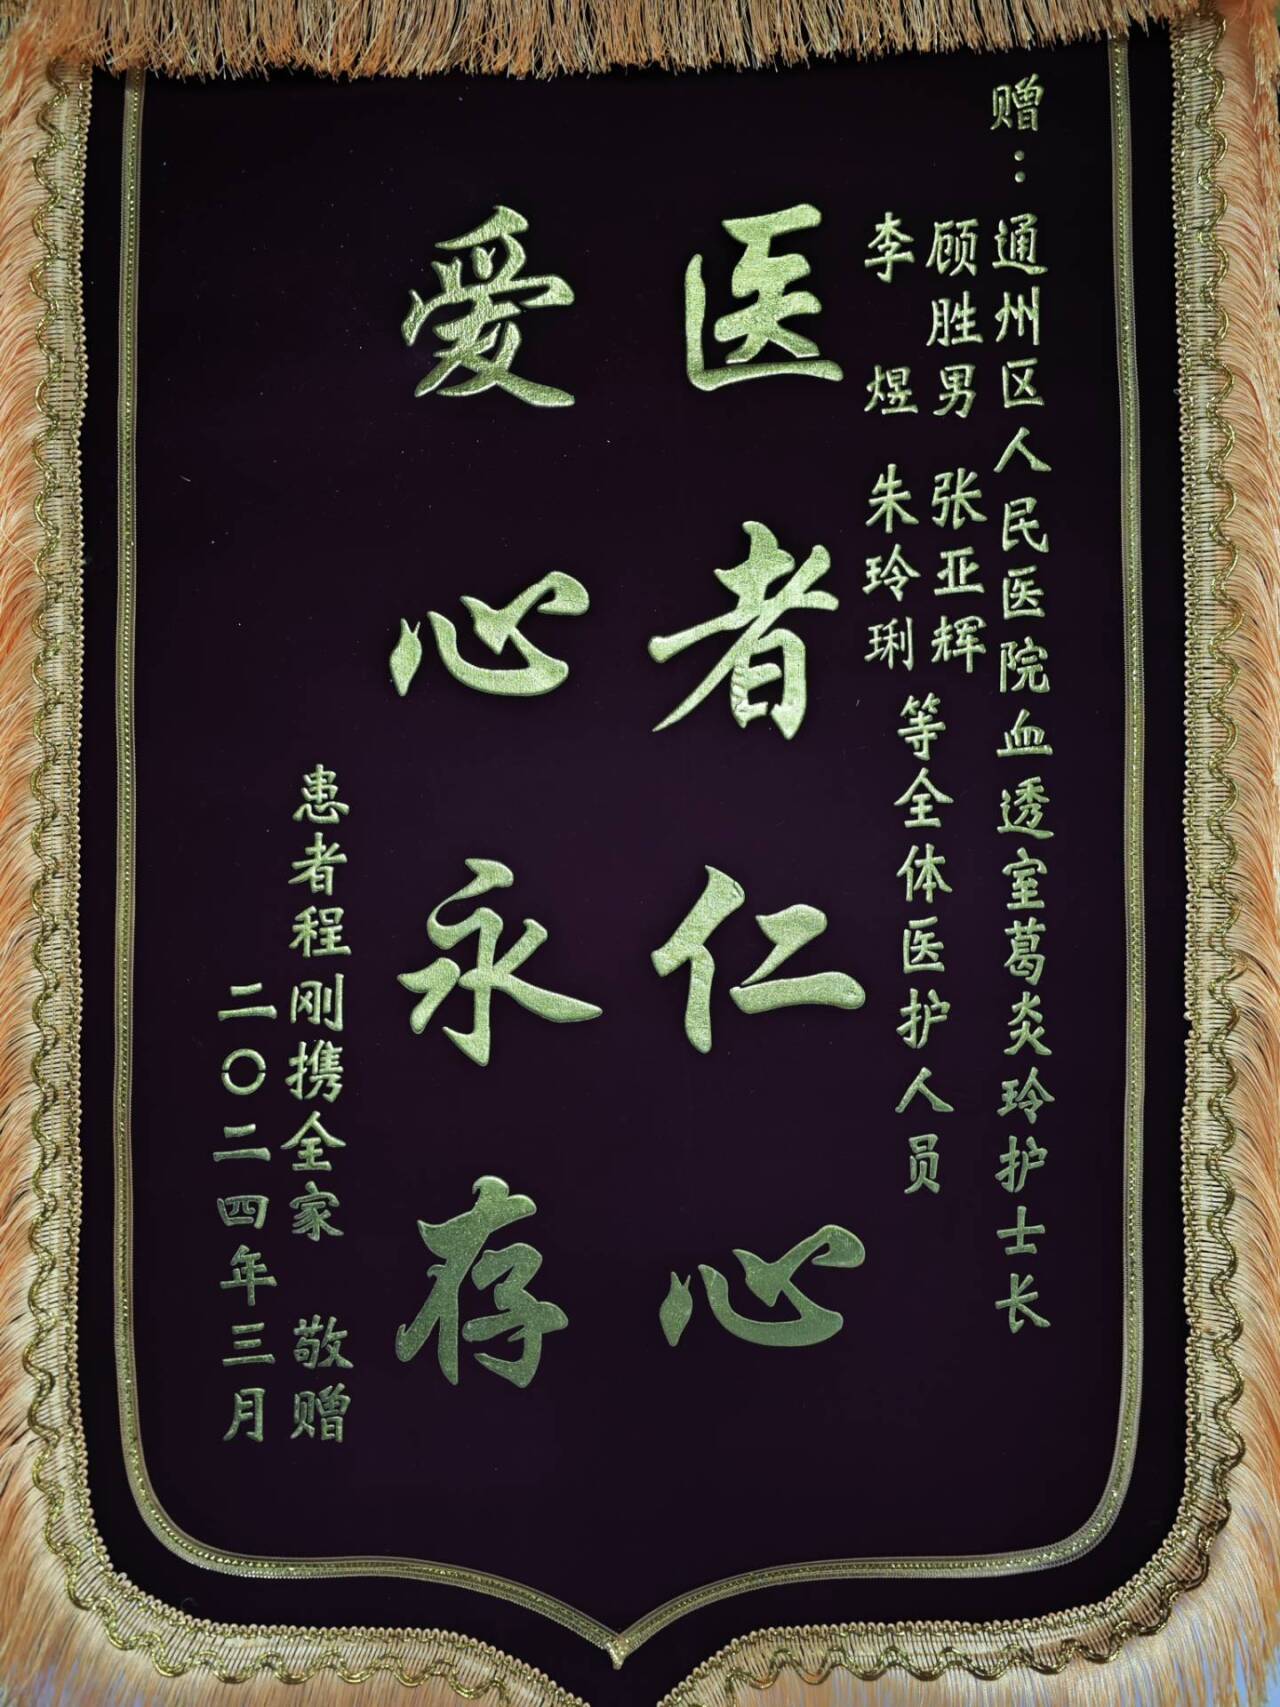 赠：通州区人民医院血透室葛炎玲护士长
顾胜男 张亚辉
李煜 朱玲琍
等全体医护人员
医者仁心
爱心永存
患者程刚携全家 敬赠
二〇二四年三月